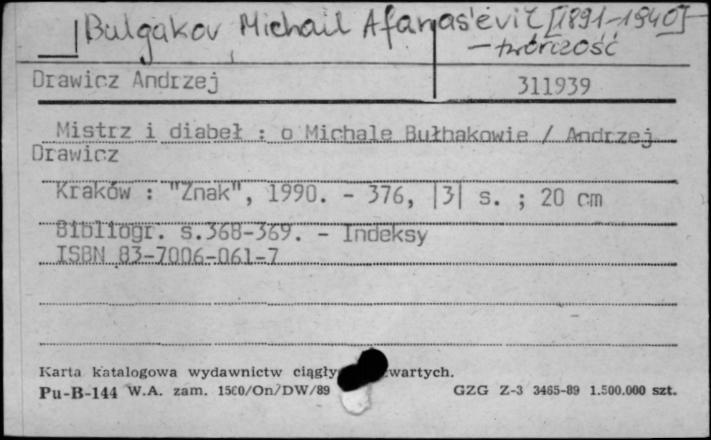 Bulgakov, Michail Afanas'evič [1891-1940]
- twórczość
Drawicz Andrzej 311939
Mistrz i diabeł : o Michale Bułhakowie / Andrzej
Drawicz
Kraków : "Znak", 1990. - 376, |3| s. ; 20 cm
Bibliogr. s.368-369. - Indeksy
ISBN 83-7006-061-7
Karta katalogowa wydawnictw ciągły wartych.
Pu-B-144 W.A. zam. 1500/On/DW/89 GZG Z-3 3465-89 1.500.000 szt.